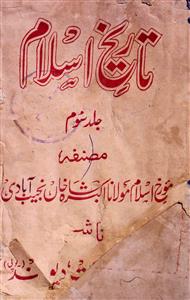 تاریخ اسلام
جلد سوم
مصنفہ
مورخ اسلام مولانا اکبر شاہ خاں نجیب آبادی
ناشر
دیوبند (یوپی)